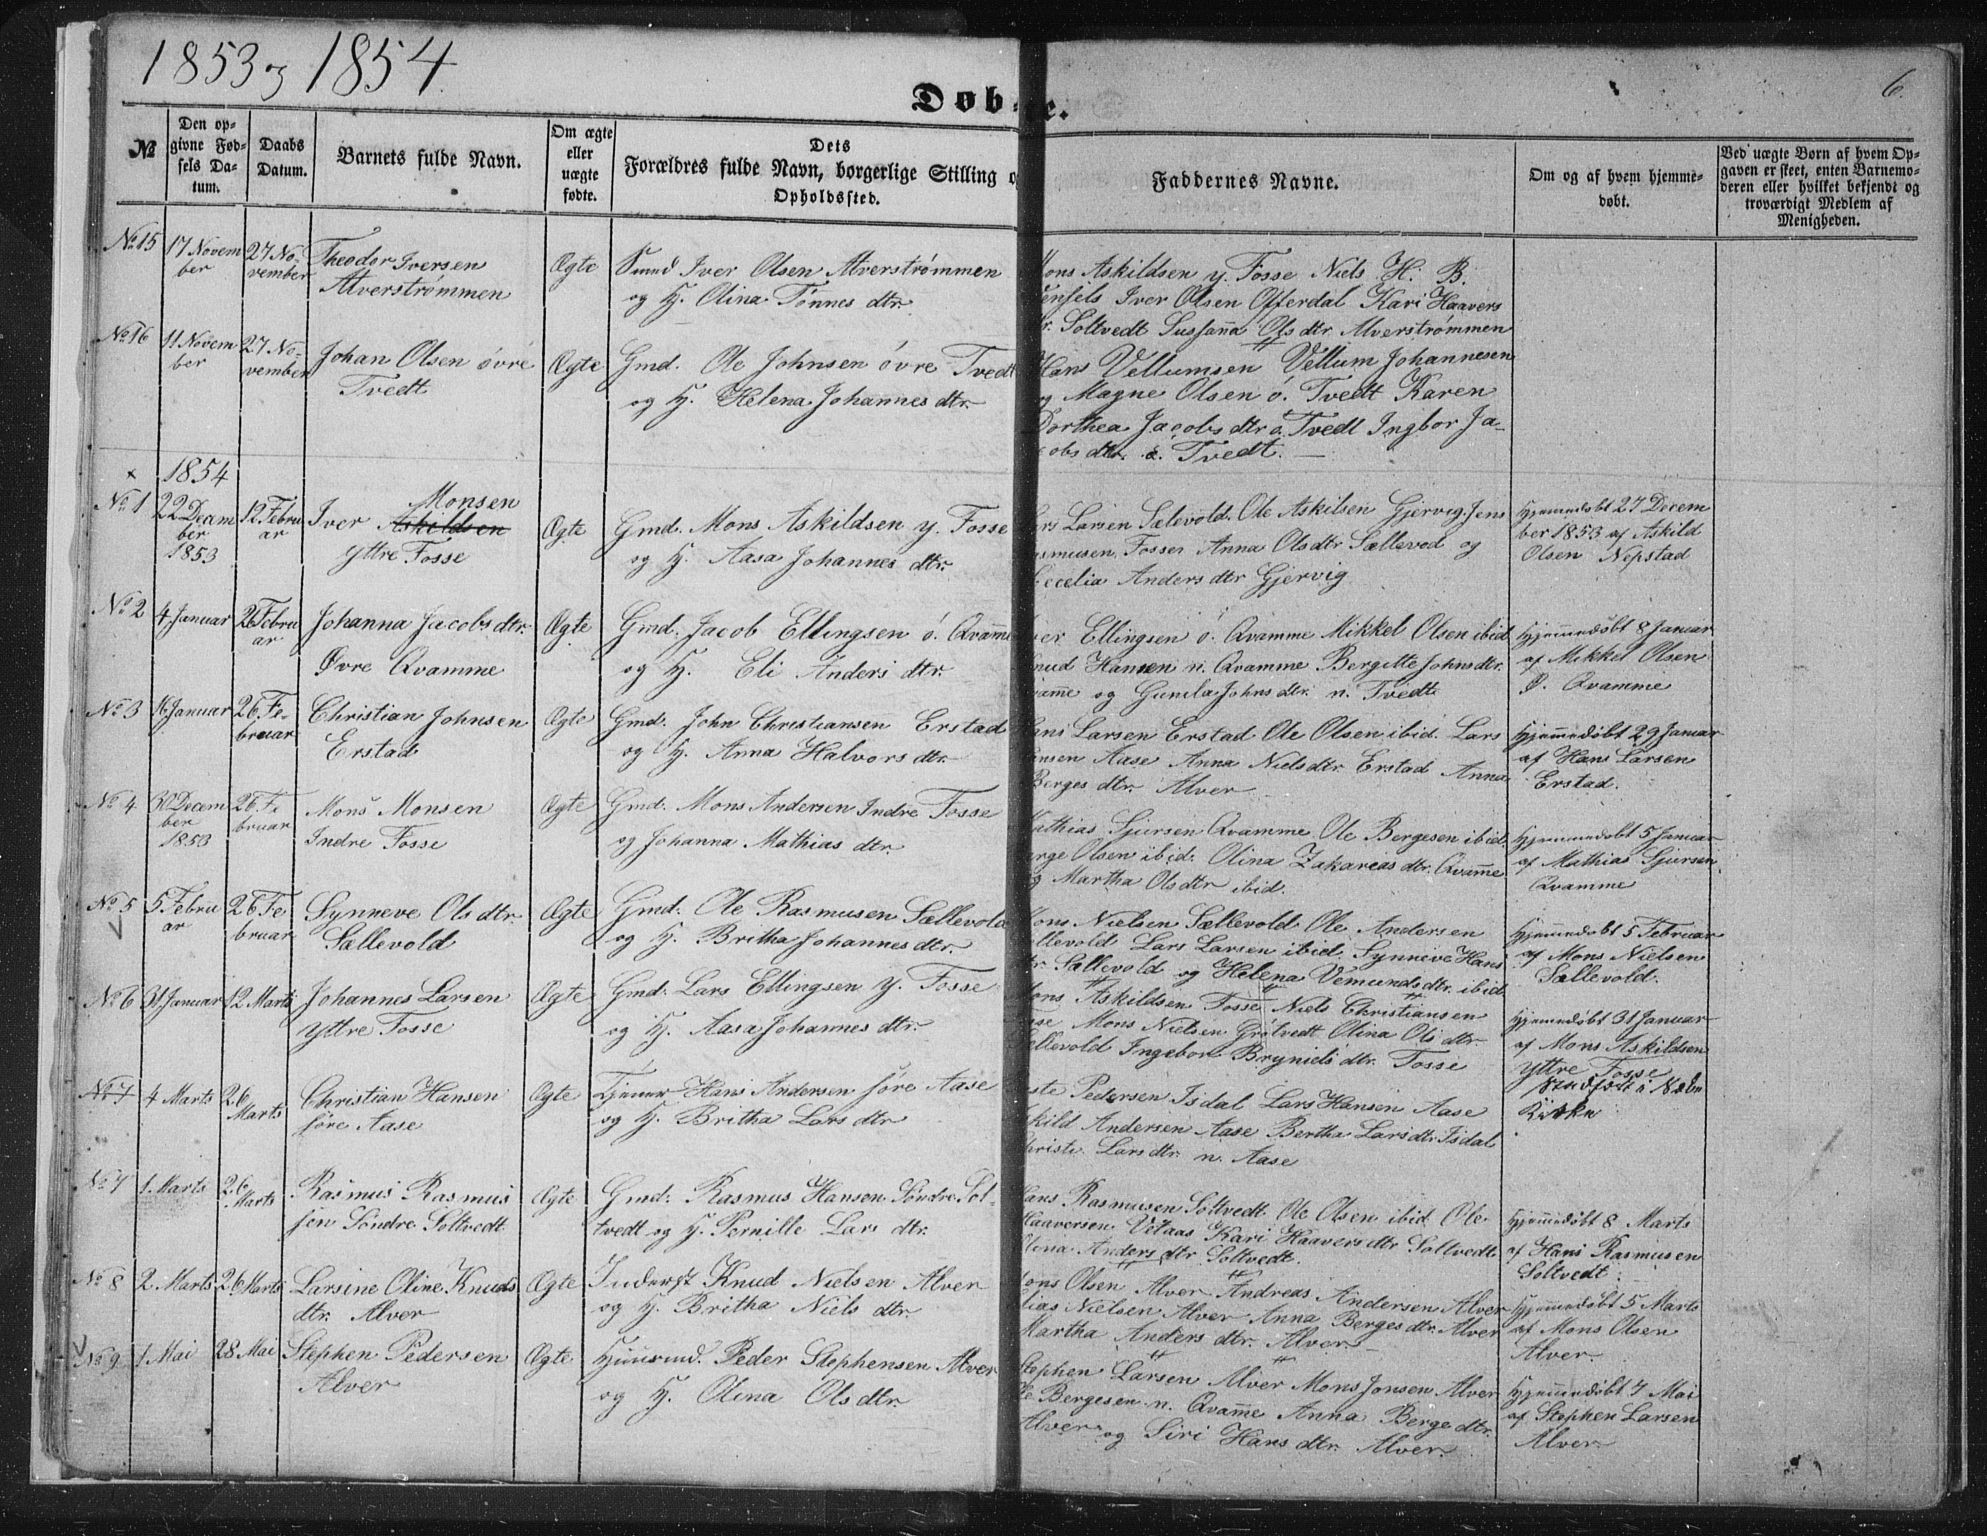 1853 og 1854.
6.
Døbte.
№
Den op-
givne Fød-
sels Da-
tum.
Daabs
Datum.
Barnets fulde Navn.
Om ægte
eller
uægte
fødte.
Dets
Forældres fulde Navn, borgerlige Stilling o
Opholdssted.
Faddernes Navne.
Om og af hvem hjemme-
døbt.
Ved uægte Børn af hvem Op-
gaven er skeet, enten Barnemo-
deren eller hvilket bekjendt og
troværdigt Medlem af
Menigheden.
No 15
17 Novem
ber
27 No-
vember
Theodor Iversen
Alverstrømmen
Ægte
Smed Iver Olsen Alverstrømmen
og H. Olina Tønnes dtr.
Mons Askildsen y. Fosse Niels H. B.
Iver Olsen Offerdal Kari Haavers
dr. Soltvedt Sussanna Ols dtr Alverstrømmen
No 16
11 Novem
ber
27 No-
vember
Johan Olsen øvre
Tvedt
Ægte
Gmd. Ole Johnsen øvre Tvedt
og H. Helena Johannes dtr.
Hans Vellumsen Vellum Johannesen
og Magne Olsen ø. Tvedt Karen
Dorthea Jacobs dtr ø. Tvedt Ingbor Ja-
cobs dtr. ø. Tvedt.
1854
No 1
22 Decem
ber
1853
12 Febru
ar
Monsen
Iver Askildsen
Yttre Fosse
Ægte
Gmd. Mons Askildsen y. Fosse
og H. Aasa Johannes dtr.
Lars Larsen Sælevold. Ole Askilsen Gjervig. Jens
Rasmusen Fosse Anna Ols dtr Sællevod og
Cecelia Anders dtr Gjervig
Hjemmedøbt 27 Decem
ber 1853 af Askild
Olsen Nepstad
No 2
4 Januar
26 Febru
ar
Johanna Jacobs dtr.
Øvre Qvamme
Ægte
Gmd. Jacob Ellingsen ø. Qvamme
og H. Eli Anders dtr.
Iver Ellingsen ø. Qvamme Mikkel Olsen ibid
Knud Hansen n. Qvamme Bergitte Johns dtr.
Qvamme og Gunila Johns dtr. n. Tvedt
Hjemmedøbt 8 Januar
af Mikkel Olsen
Ø. Qvamme
No 3
16 Januar
26 Fe-
bruar
Christian Johnsen
Erstad
Ægte
Gmd. John Christiansen Erstad
og H. Anna Halvors dtr.
Hans Larsen Erstad Ole Olsen ibid. Lars
Hansen Aase Anna Niels dtr. Erstad Anna
Berges dtr. Alver
Hjemmedøbt 29 Januar
af Hans Larsen
Erstad.
No 4
30 Decem
ber
1853
26 Fe
bruar
Mons Monsen
Indre Fosse
Ægte
Gmd. Mons Andersen Indre Fosse
og Johanna Mathias dtr.
Mathias Sjursen Qvamme Ole Bergesen ibid.
Berge Olsen ibid. Olina Zakarias dtr. Qvamme
og Martha Ols dtr ibid.
Hjemmedøbt 5 Januar
af Mathias Sjursen
Qvamme
No 5
5 Febru
ar
26 Fe
bruar
Synneve Ols dtr
Sællevold
Ægte
Gmd. Ole Rasmusen Sællevold
og H. Britha Johannes dtr.
Mons Nielsen Sællevold Ole Andersen
Sællevold Lars Larsen ibid. Synneve Hans
dtr. Sællevold og Helena Vemunds dtr. ibid
Hjemmedøbt 5 Februar
af Mons Nielsen
Sællevold.
No 6
31 Januar
12 Marts
Johannes Larsen
Yttre Fosse
Ægte
Gmd. Lars Ellingsen Y. Fosse
og H. Aasa Johannes dtr.
Mons Askildsen Fosse Niels Christiansen
Mons Nielsen Grøtvedt Olina Ols dtr.
Sællevold Ingebor Bryniels dtr. Fosse
Hjemmedøbt 31 Januar
af Mons Askildsen
Yttre Fosse
No 7
4 Marts
26
Marts
Christian Hansen
søre Aase
Ægte
Tjener Hans Andersen søre Aase
og H. Britha Lars dtr
Pedersen Isdal Lars Hansen Aase
Askild Andersen Aase Bertha Lars dtr. Isdal
Christi Lars dtr. n. Aase
Kirke
No 7
1. Marts
26
Marts
Rasmus Rasmus
sen Søndre Soltvedt
Ægte
Gmd. Rasmus Hansen Søndre Sol-
tvedt og H. Pernille Lars dtr.
Hans Rasmusen Soltvedt Ole Olsen ibid. Ole
Haaversen Vetaas Kari Haavers dtr Soltvedt
Olina Anders dtr Soltvedt.
Hjemmedøbt 8 Marts
af Hans Rasmusen
Soltvedt
No 8
2. Marts
26 Marts
Larsine Oline Knuds
dtr. Alver
Ægte
Inderst Knud Nielsen Alver
og H. Britha Niels dtr.
Mons Olsen Alver Andreas Andersen Alver
Elias Nielsen Alver Anna Berges dtr. Alver
Martha Anders dtr. Alver
Hjemmedøbt 5 Marts
af Mons Olsen
Alver.
No 9
1 Mai
28 Mai
Stephen Pedersen
Alver
Ægte
Huusmd. Peder Stephensen Alver
og H. Olina Ols dtr
Stephen Larsen Alver Mons Jonsen Alver
Ole Bergesen n. Qvamme Anna Berge dtr.
Alver og Siri Hans dtr. Alver.
Hjemmedøbt 7 Mai
af Stephen Larsen
Alver